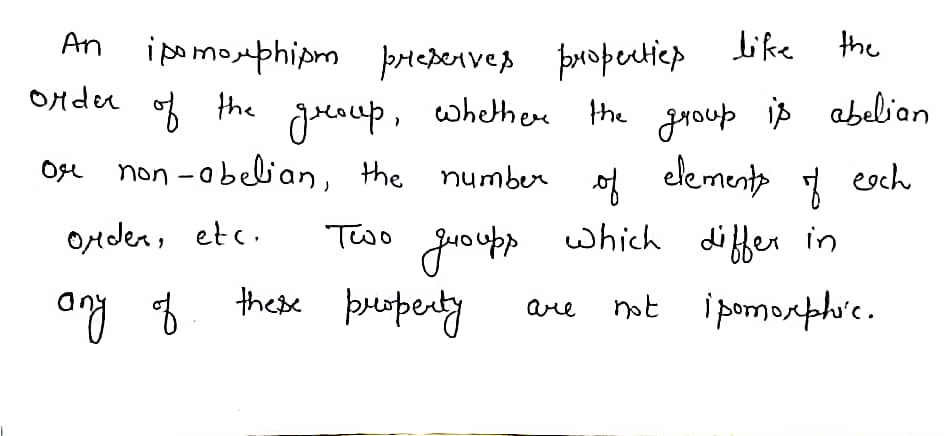 An isomorphism preserves properties like the
order of the group, whether the group is abelian
or non-abelian, the number of elements of each
order, etc. Two groups which differ in
any of these property are not isomorphic.